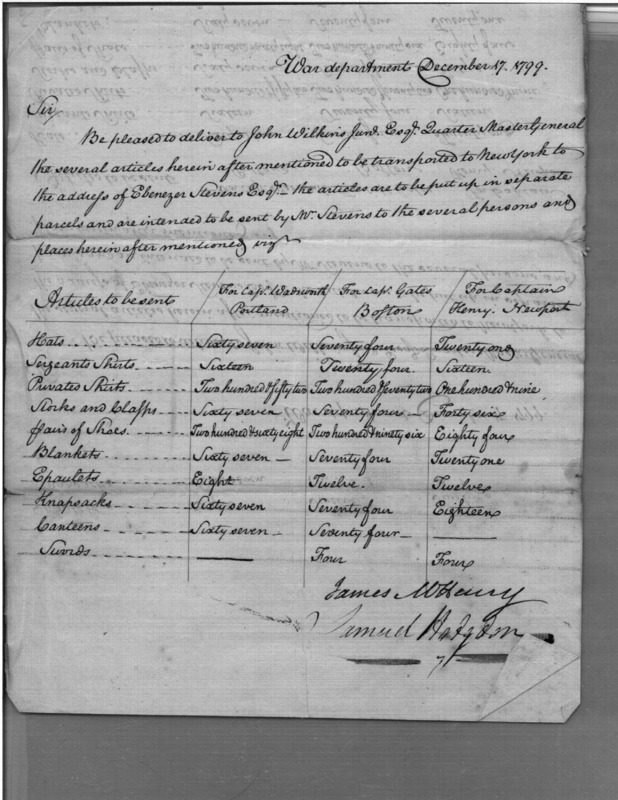 War department December 17. 1799.
Sir,
Be pleased to deliver to John Wilkins Junr. Esqr. Quarter Master General
the several articles herein after mentioned to be transported to New York to
the address of Ebenezer Stevens Esqr. - the articles are to be put up in separate
parcels and are intended to be sent by Mr. Stevens to the several persons and
places herein after mentioned viz
Articles to be sent For Capt. Wadsworth Portland For Capt. Gates Boston For Captain Henry. Newport
Hats Sixty seven Seventy four Twenty one
Sergeants Shirts Sixteen Twenty four Sixteen
Privates Shirts Two hundred & fifty two Two hundred & seventy two One hundred & nine
Stocks and Clasps Sixty seven Seventy four Forty six
Pairs of Shoes Two hundred & sixty eight Two hundred & ninety six Eighty four
Blankets Sixty seven Seventy four Twenty one
Epaulets Eight Twelve. Twelve
Knapsacks Sixty seven Seventy four Eighteen
Canteens Sixty seven Seventy four
Swords Four Four
James McHenry
Samuel Hodgdon